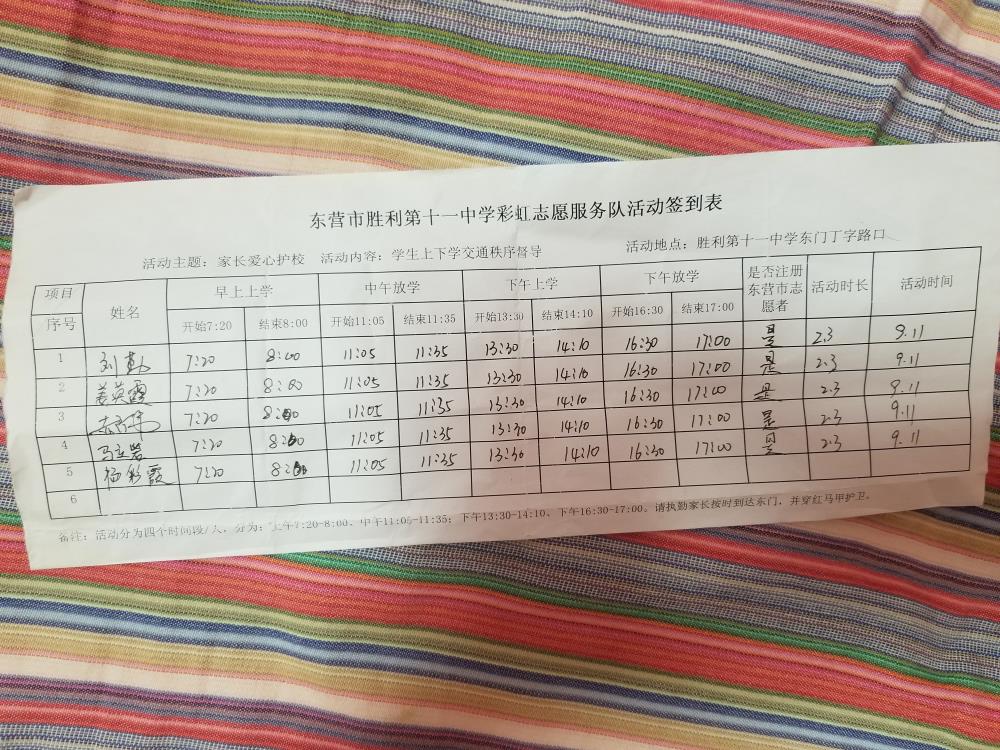 东营市胜利第十一中学彩虹志愿服务队活动签到表
活动主题：家长爱心护校 活动内容：学生上下学交通秩序督导 活动地点：胜利第十一中学东门丁字路口
项目 姓名 早上上学 中午放学 下午上学 下午放学 是否注册东营市志愿者 活动时长 活动时间
序号 开始7:20 结束8:00 开始11:05 结束11:35 开始13:30 结束14:10 开始16:30 结束17:00
1 刘 7:20 8:00 11:05 11:35 13:30 14:10 16:30 17:00 是 2.3 9.11
2 姜英霞 7:20 8:00 11:05 11:35 13:30 14:10 16:30 17:00 是 2.3 9.11
3 7:20 8:00 11:05 11:35 13:30 14:10 16:30 17:00 是 2.3 9.11
4 马 7:20 8:00 11:05 11:35 13:30 14:10 16:30 17:00 是 2.3 9.11
5 杨彩霞 7:20 8:00 11:05 11:35 13:30 14:10 16:30 17:00 是 2.3 9.11
6
备注：活动分为四个时间段/人，分为：上午7:20-8:00、中午11:05-11:35；下午13:30-14:10、下午16:30-17:00。请执勤家长按时到达东门，并穿红马甲护卫。